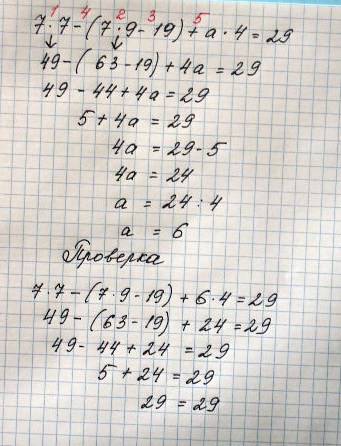 1 4 2 3 5
7·7-(7·9-19)+a·4=29
49-(63-19)+4a=29
49-44+4a=29
5+4a=29
4a=29-5
4a=24
a=24:4
a=6
Проверка
7·7-(7·9-19)+6·4=29
49-(63-19)+24=29
49-44+24=29
5+24=29
29=29